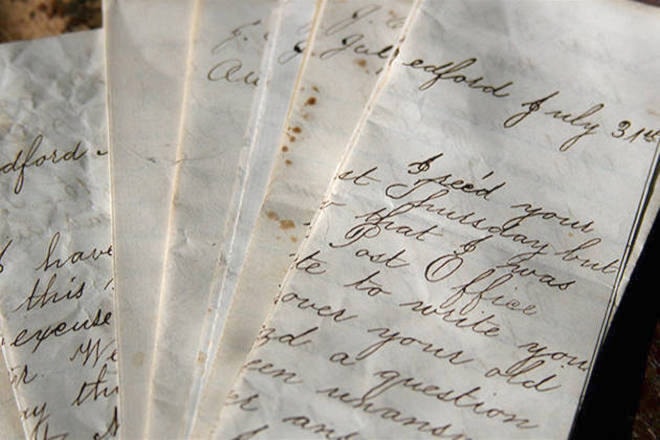 dford
I have
this
excuse
We
Au
J.
Jul
edford July 31st
I rec'd your
st Thursday but
that I was
Post Office
te to write you
over your old
a question
een unansw
er an